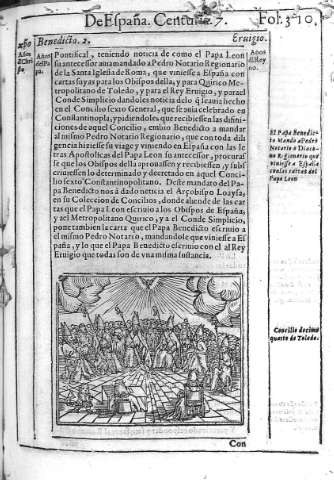 De España. Centuria 7. Fol. 310.
Benedicto. 2. Eruigio.
Años del Papa.
Años del Rey no.
Pontifical, teniendo noticia de como el Papa Leon
su antecessor auia mandado a Pedro Notario Regionario
de la Santa Iglesia de Roma, que viniesse a España con
cartas suyas para los Obispos della, y para Quirico Me-
tropolitano de Toledo, y para el Rey Eruigio, y para el
Conde Simplicio dandoles noticia de lo q̃ se auia hecho
en el Concilio sexto General, que se auia celebrado en
Constantinopla, y pidiendoles que recibiessen las difini-
ciones de aquel Concilio, embio Benedicto a mandar
al mismo Pedro Notario Regionario, que con toda dili
gencia hiziesse su viage y viniendo en España con las le
tras Apostolicas del Papa Leon su antecessor, procuras
se que los Obispos della aprouassen y recibiessen, y subs
criuiessen lo determinado y decretado en aquel Conci-
lio sexto Constantinopolitano. Deste mandato del Pa-
pa Benedicto nos à dado noticia el Arçobispo Loaysa,
en su Coleccion de Concilios, donde aliende de las car
tas que el Papa Leon escriuio a los Obispos de España,
y al Metropolitano Quirico, y a el Conde Simplicio,
pone tambien la carta que el Papa Benedicto escriuio a
el mismo Pedro Notario, mandandole que viniesse a Es
paña, y lo que el Papa Benedicto escriuio con el al Rey
Eruigio que todas son de vna misma sustancia.
El Papa Benedic-
to Mando a Pedro
Notario
viniesse a España
con las cartas del
Papa Leon
Concilio decimo
quarto de Toledo.
Con